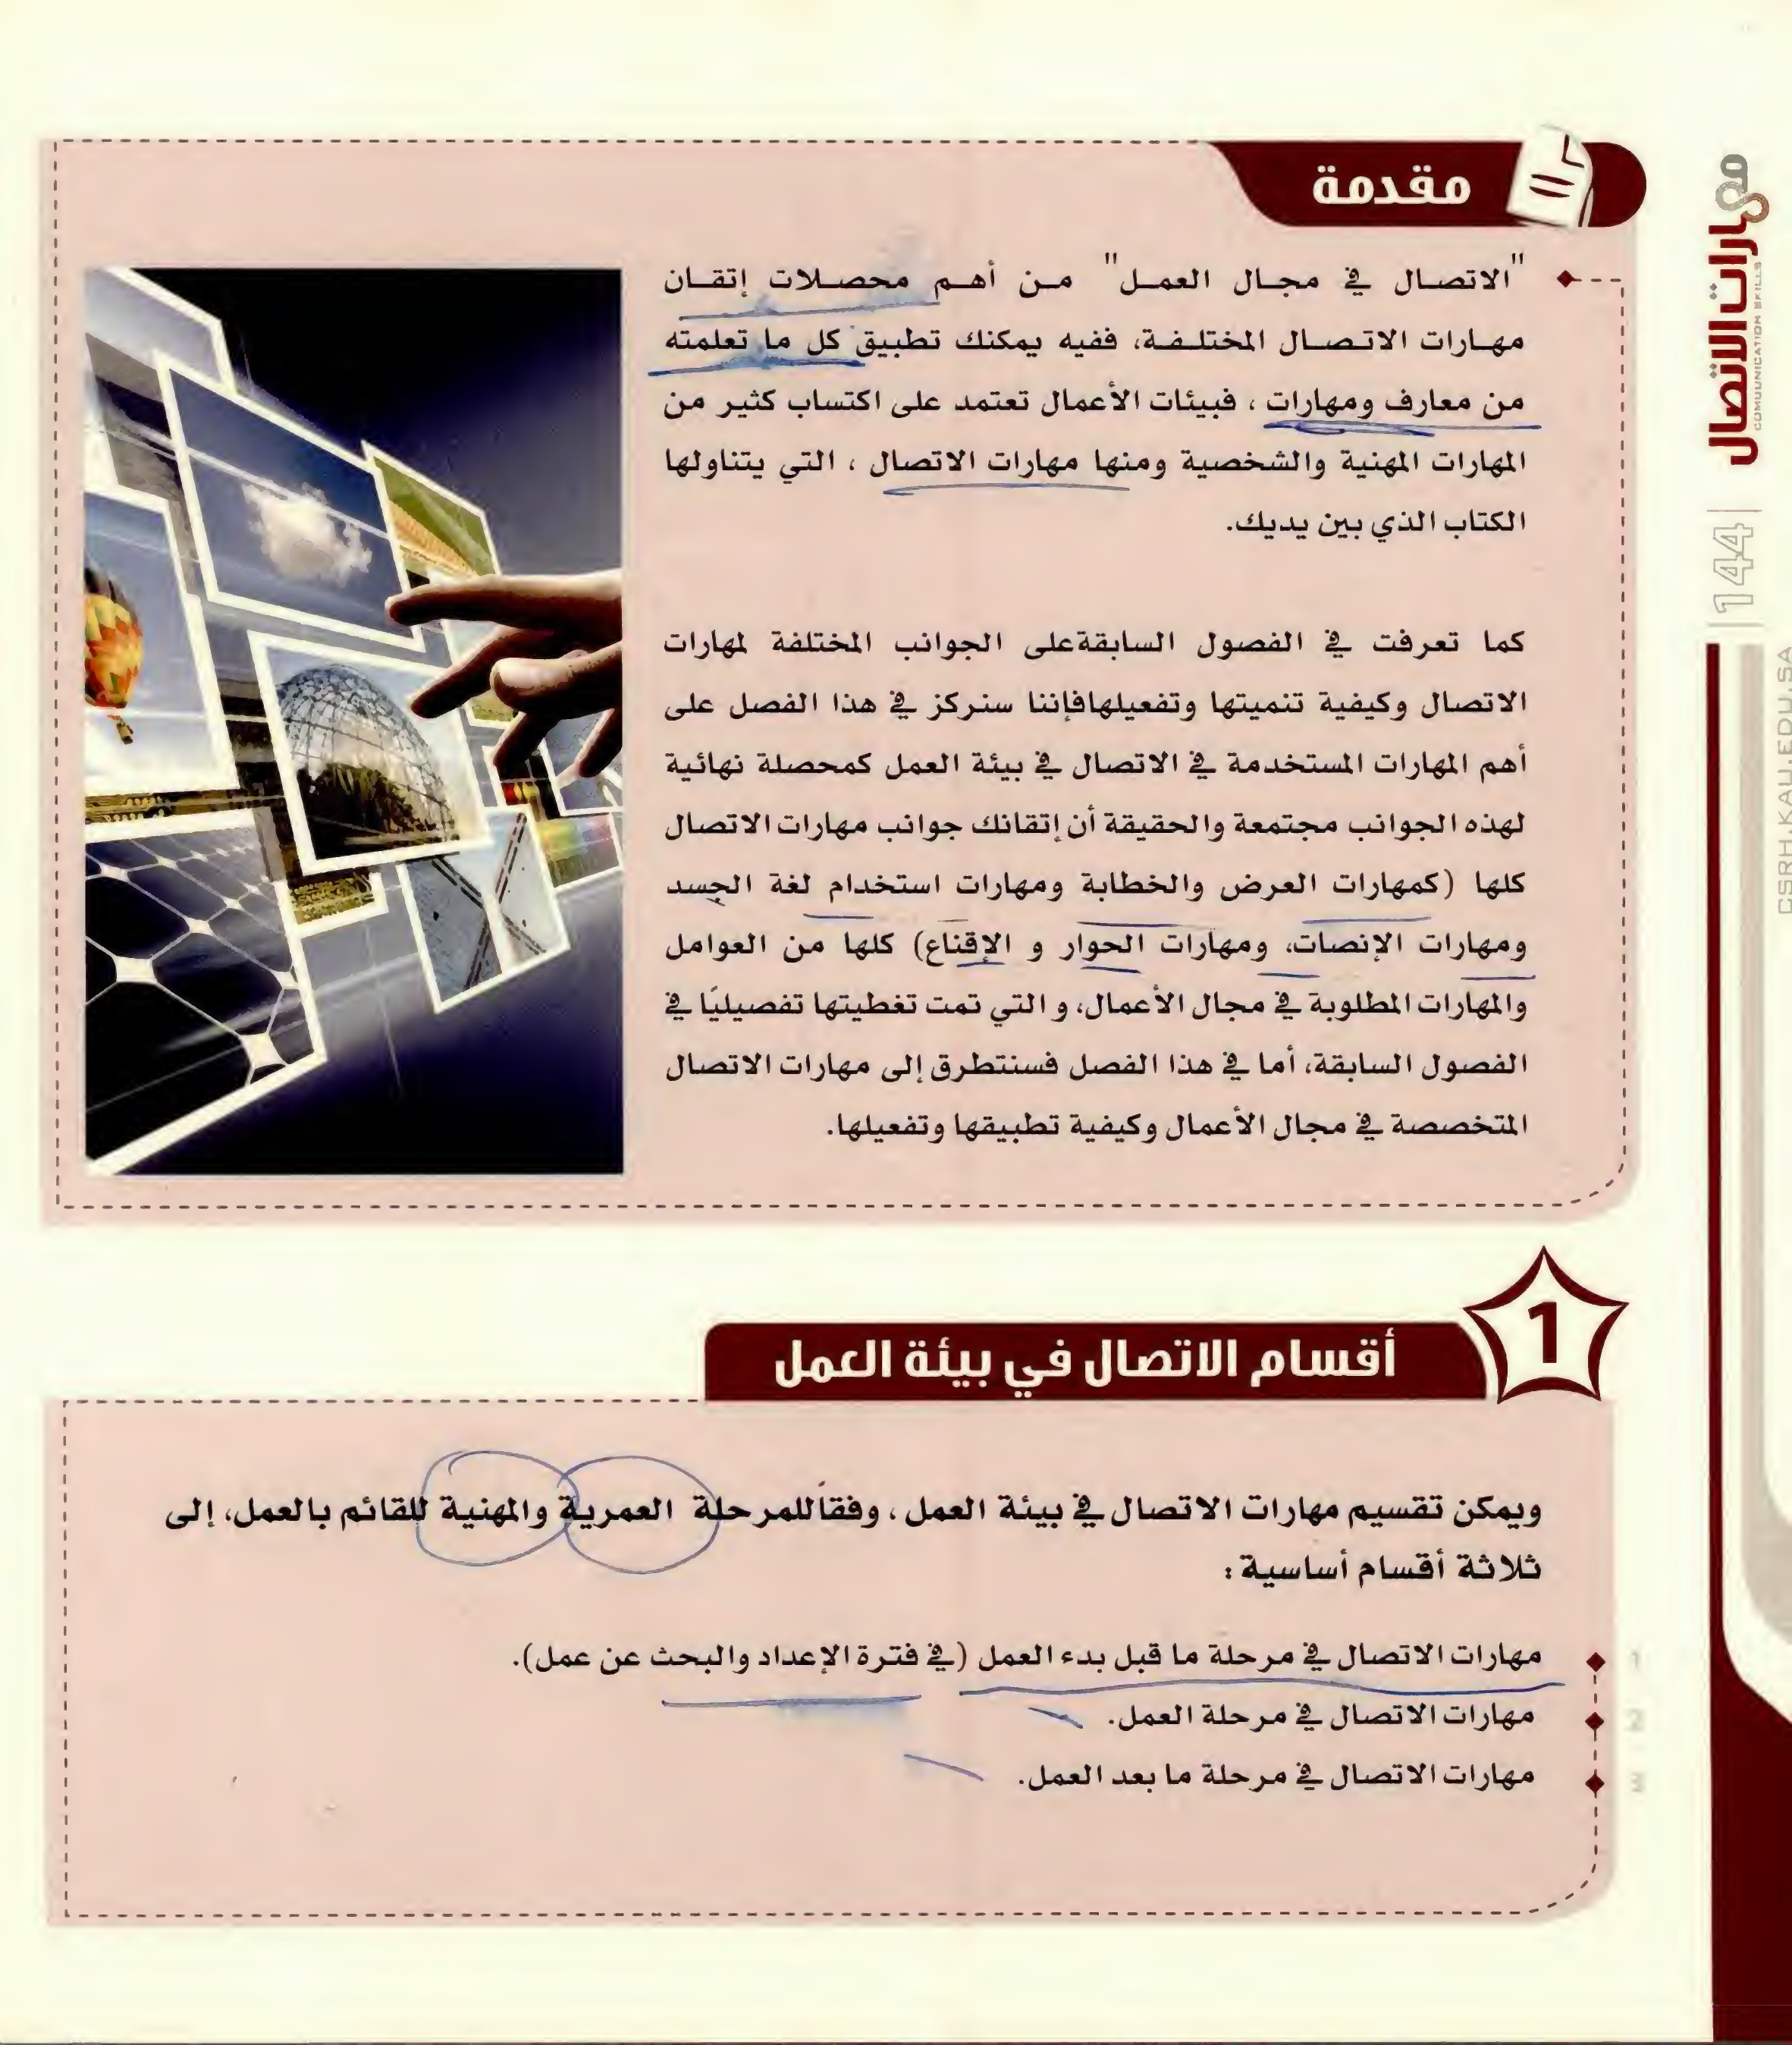 مهارات الاتصال
COMUNICATION SKILLS
144
CSRH.KAU.EDU.SA
مقدمة
"الاتصال في مجال العمل" من أهم محصلات إتقان
مهارات الاتصال المختلفة، ففيه يمكنك تطبيق كل ما تعلمته
من معارف ومهارات ، فبيئات الأعمال تعتمد على اكتساب كثير من
المهارات المهنية والشخصية ومنها مهارات الاتصال ، التي يتناولها
الكتاب الذي بين يديك.
كما تعرفت في الفصول السابقةعلى الجوانب المختلفة لمهارات
الاتصال وكيفية تنميتها وتفعيلهافإننا سنركز في هذا الفصل على
أهم المهارات المستخدمة في الاتصال في بيئة العمل كمحصلة نهائية
لهذه الجوانب مجتمعة والحقيقة أن إتقانك جوانب مهارات الاتصال
كلها (كمهارات العرض والخطابة ومهارات استخدام لغة الجسد
ومهارات الإنصات، ومهارات الحوار و الإقناع) كلها من العوامل
والمهارات المطلوبة في مجال الأعمال، و التي تمت تغطيتها تفصيليًا في
الفصول السابقة، أما في هذا الفصل فسنتطرق إلى مهارات الاتصال
المتخصصة في مجال الأعمال وكيفية تطبيقها وتفعيلها.
1
أقسام الاتصال في بيئة العمل
ويمكن تقسيم مهارات الاتصال في بيئة العمل ، وفقاًللمرحلة العمرية والمهنية للقائم بالعمل، إلى
ثلاثة أقسام أساسية :
1 مهارات الاتصال في مرحلة ما قبل بدء العمل (في فترة الإعداد والبحث عن عمل).
2 مهارات الاتصال في مرحلة العمل.
3 مهارات الاتصال في مرحلة ما بعد العمل.